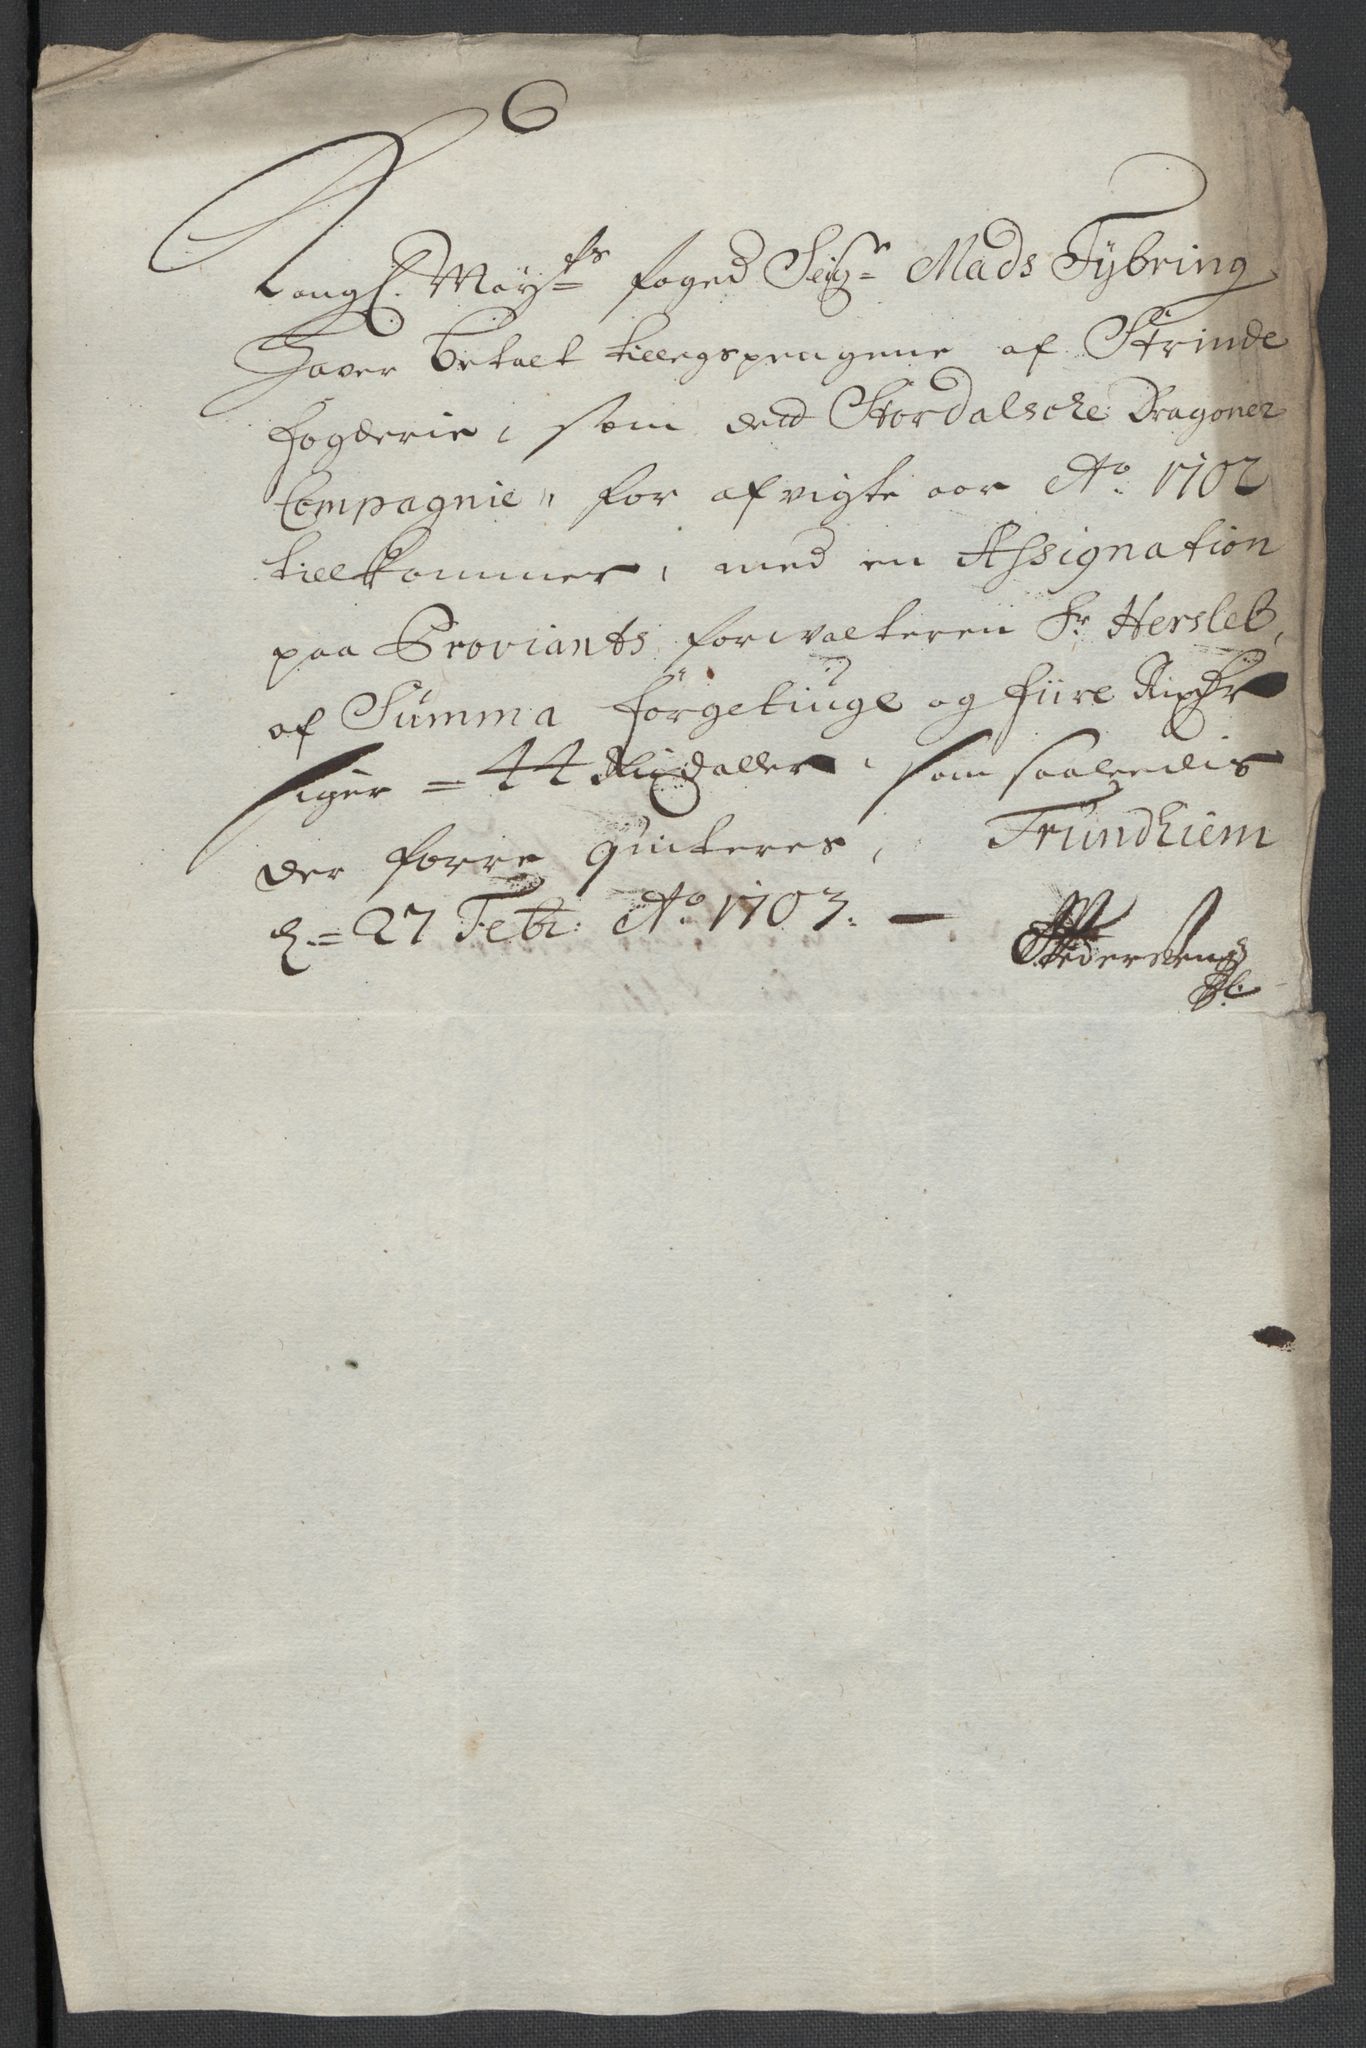 Kongl. May:ts foged Seig:r Mads Tÿbring
Haver betalt tillegspengene af Strinde
fogderie, som det Stordalsche Dragoner
Compagnie, for afvigte aar Ao. 1702
tillkommer, med en Assignation
paa Proviants forvalteren Sr. Hersleb,
af Summa förgetiuge og fiire Rixdr
siger = 44 Rixdaller, som saaledis
der forre qvitteres, Trundhiem
d. = 27 Febr: Ao 1703. —
Pedersen